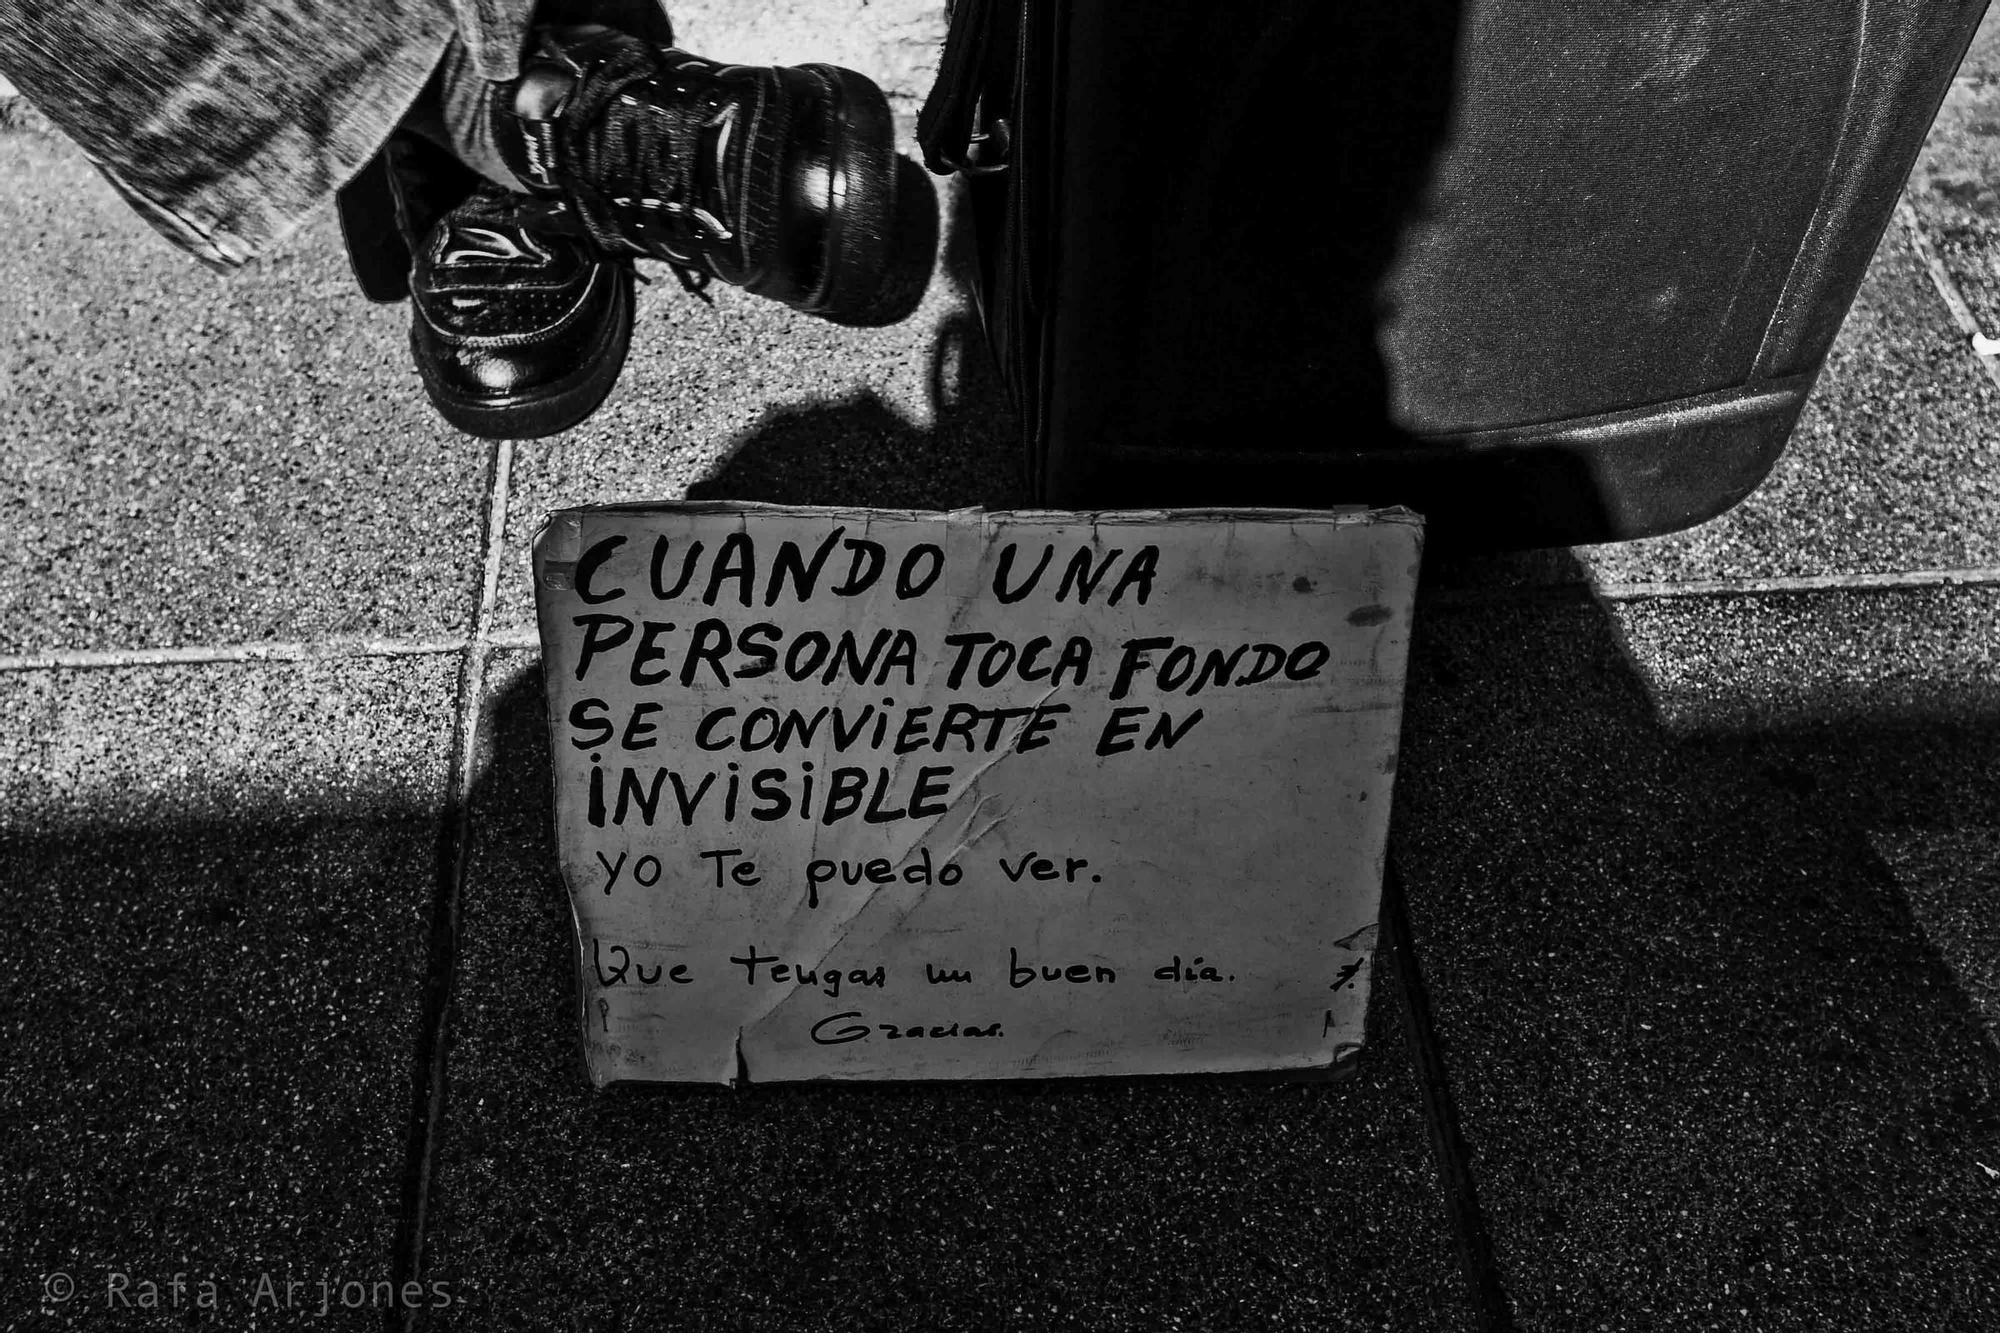 CUANDO UNA
PERSONA TOCA FONDO
SE CONViERTE EN
iNViSiBLE
YO Te puedo ver.
Que tengas un buen día.
Gracias.
© Rafa Arjones